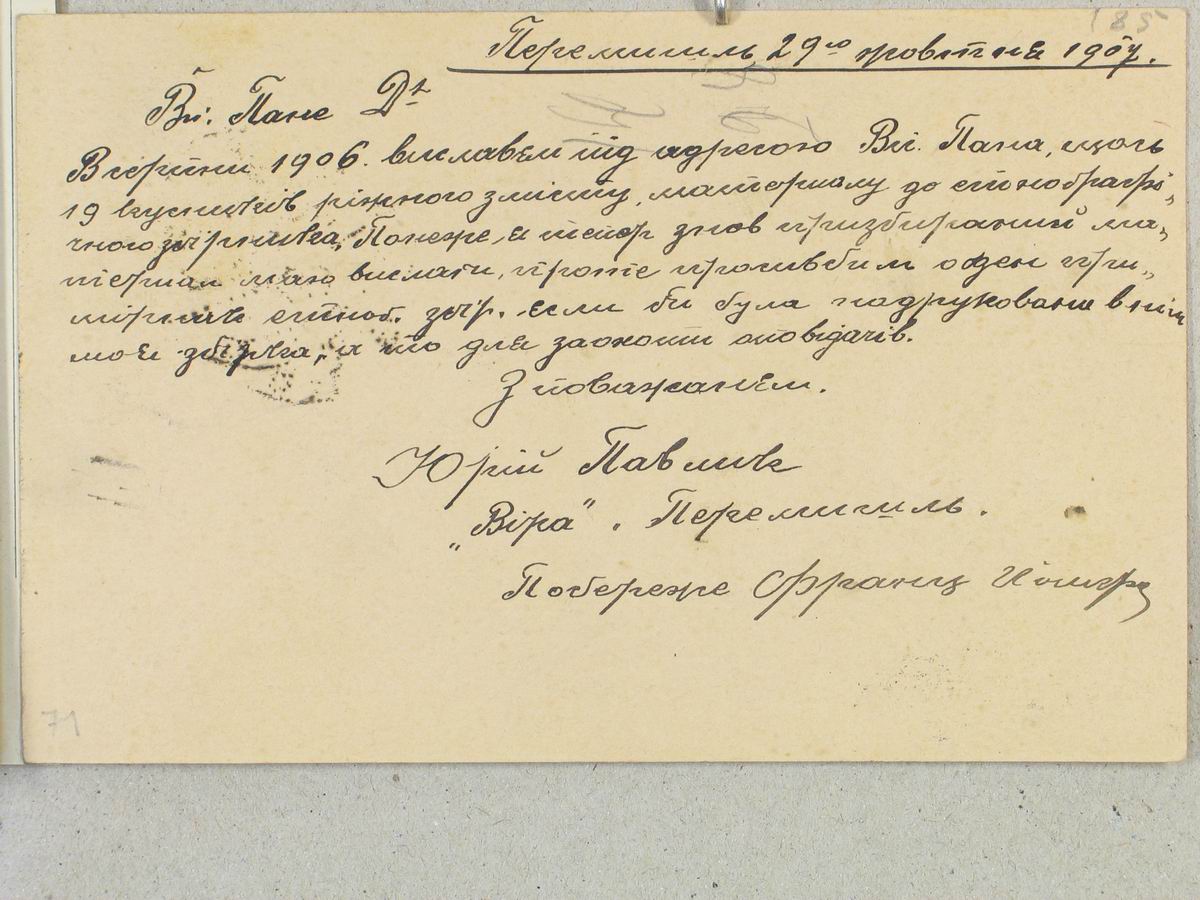 185
Перемишль, 29го жовтня 1907.
Вп. Пане Др
В серпни 1906. виславем під адресою Вп. Пана, щось
19 кусників ріжного змісту, материялу до етнобграфі„
чного збірника, Понеже, я тепер знов призбираний ма„
териял маю вислати, проте просивбим оден при„
мірник етног. збір. если би була надрукована в нім
моя збірка, а то для заохоти оповідачів.
З поважанєм.
Юрій Павлик
„Віра" . Перемишль.
Побереже Франц Йосифа
71